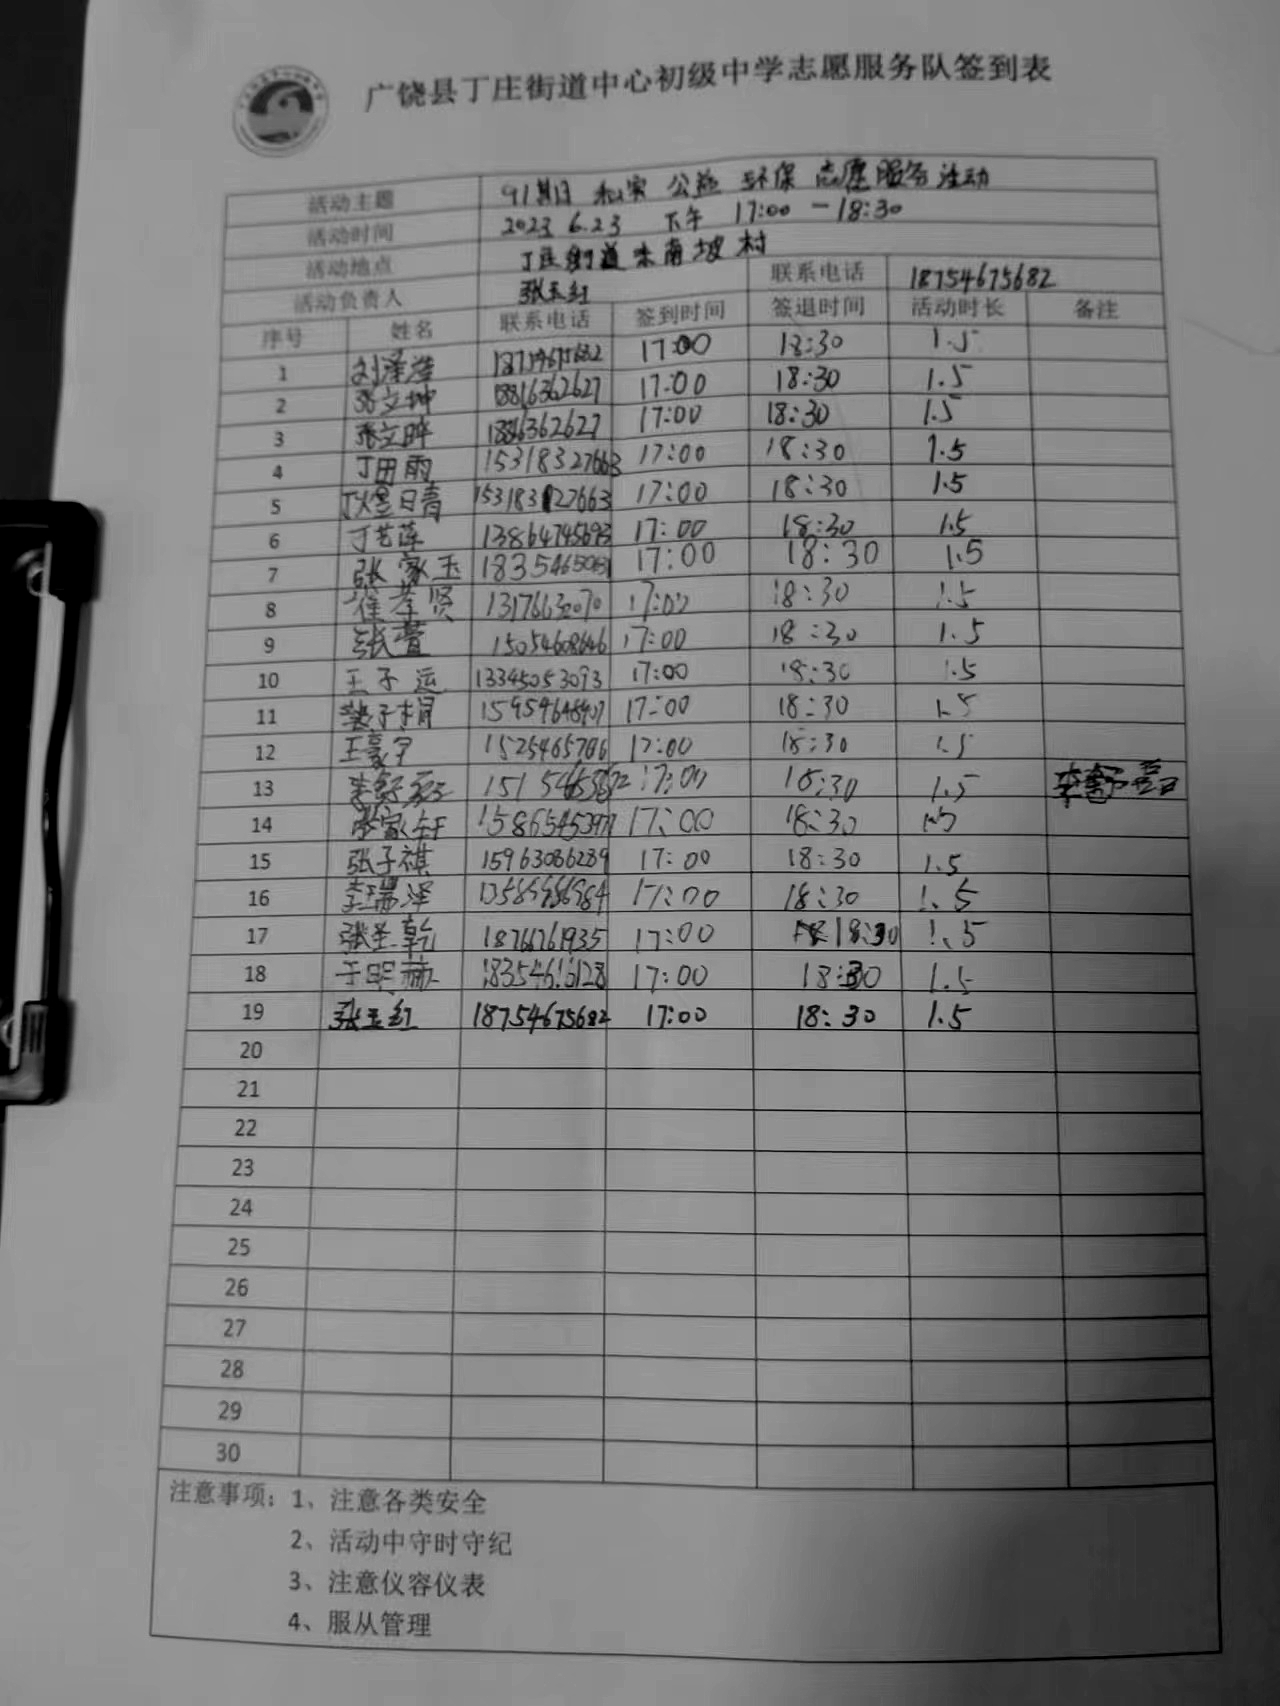 广饶县丁庄街道中心初级中学志愿服务队签到表
活动主题 公益 环保 志愿服务活动
活动时间 2023 6.23 下午 17:00 - 18:30
活动地点 丁庄街道 南坡村
活动负责人 张玉红 联系电话 18754675682
序号 姓名 联系电话 签到时间 签退时间 活动时长 备注
1 17:00 18:30 1.5
2 张文坤 17:00 18:30 1.5
3 张文晔 17:00 18:30 1.5
4 丁田雨 15318327663 17:00 18:30 1.5
5 丁煜晴 15318327663 17:00 18:30 1.5
6 丁艺莲 13864745693 17:00 18:30 1.5
7 张家玉 17:00 18:30 1.5
8 崔孝贤 17:00 18:30 1.5
9 张萱 15054608646 17:00 18:30 1.5
10 王子运 13345053093 17:00 18:30 1.5
11 17:00 18:30 1.5
12 王豪宇 17:00 18:30 1.5
13 17:00 18:30 1.5
14 17:00 18:30
15 张子祺 15963086289 17:00 18:30 1.5
16 李瑞泽 17:00 18:30 1.5
17 张圣乾 18766761935 17:00 18:30 1.5
18 17:00 18:30 1.5
19 张玉红 18754675682 17:00 18:30 1.5
20
21
22
23
24
25
26
27
28
29
30
注意事项：1、注意各类安全
2、活动中守时守纪
3、注意仪容仪表
4、服从管理